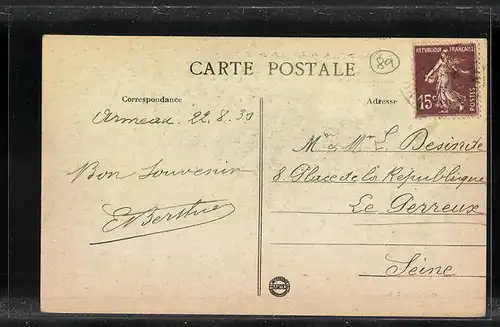 89
CARTE POSTALE
REPUBLIQUE FRANÇAISE
15c
POSTES
Correspondance
Adresse
Armeau 22.8.30
Bon Souvenir
E Berthie
Mr & Mme L. Desinde
8. Place de la République
Le Perreux
Seine